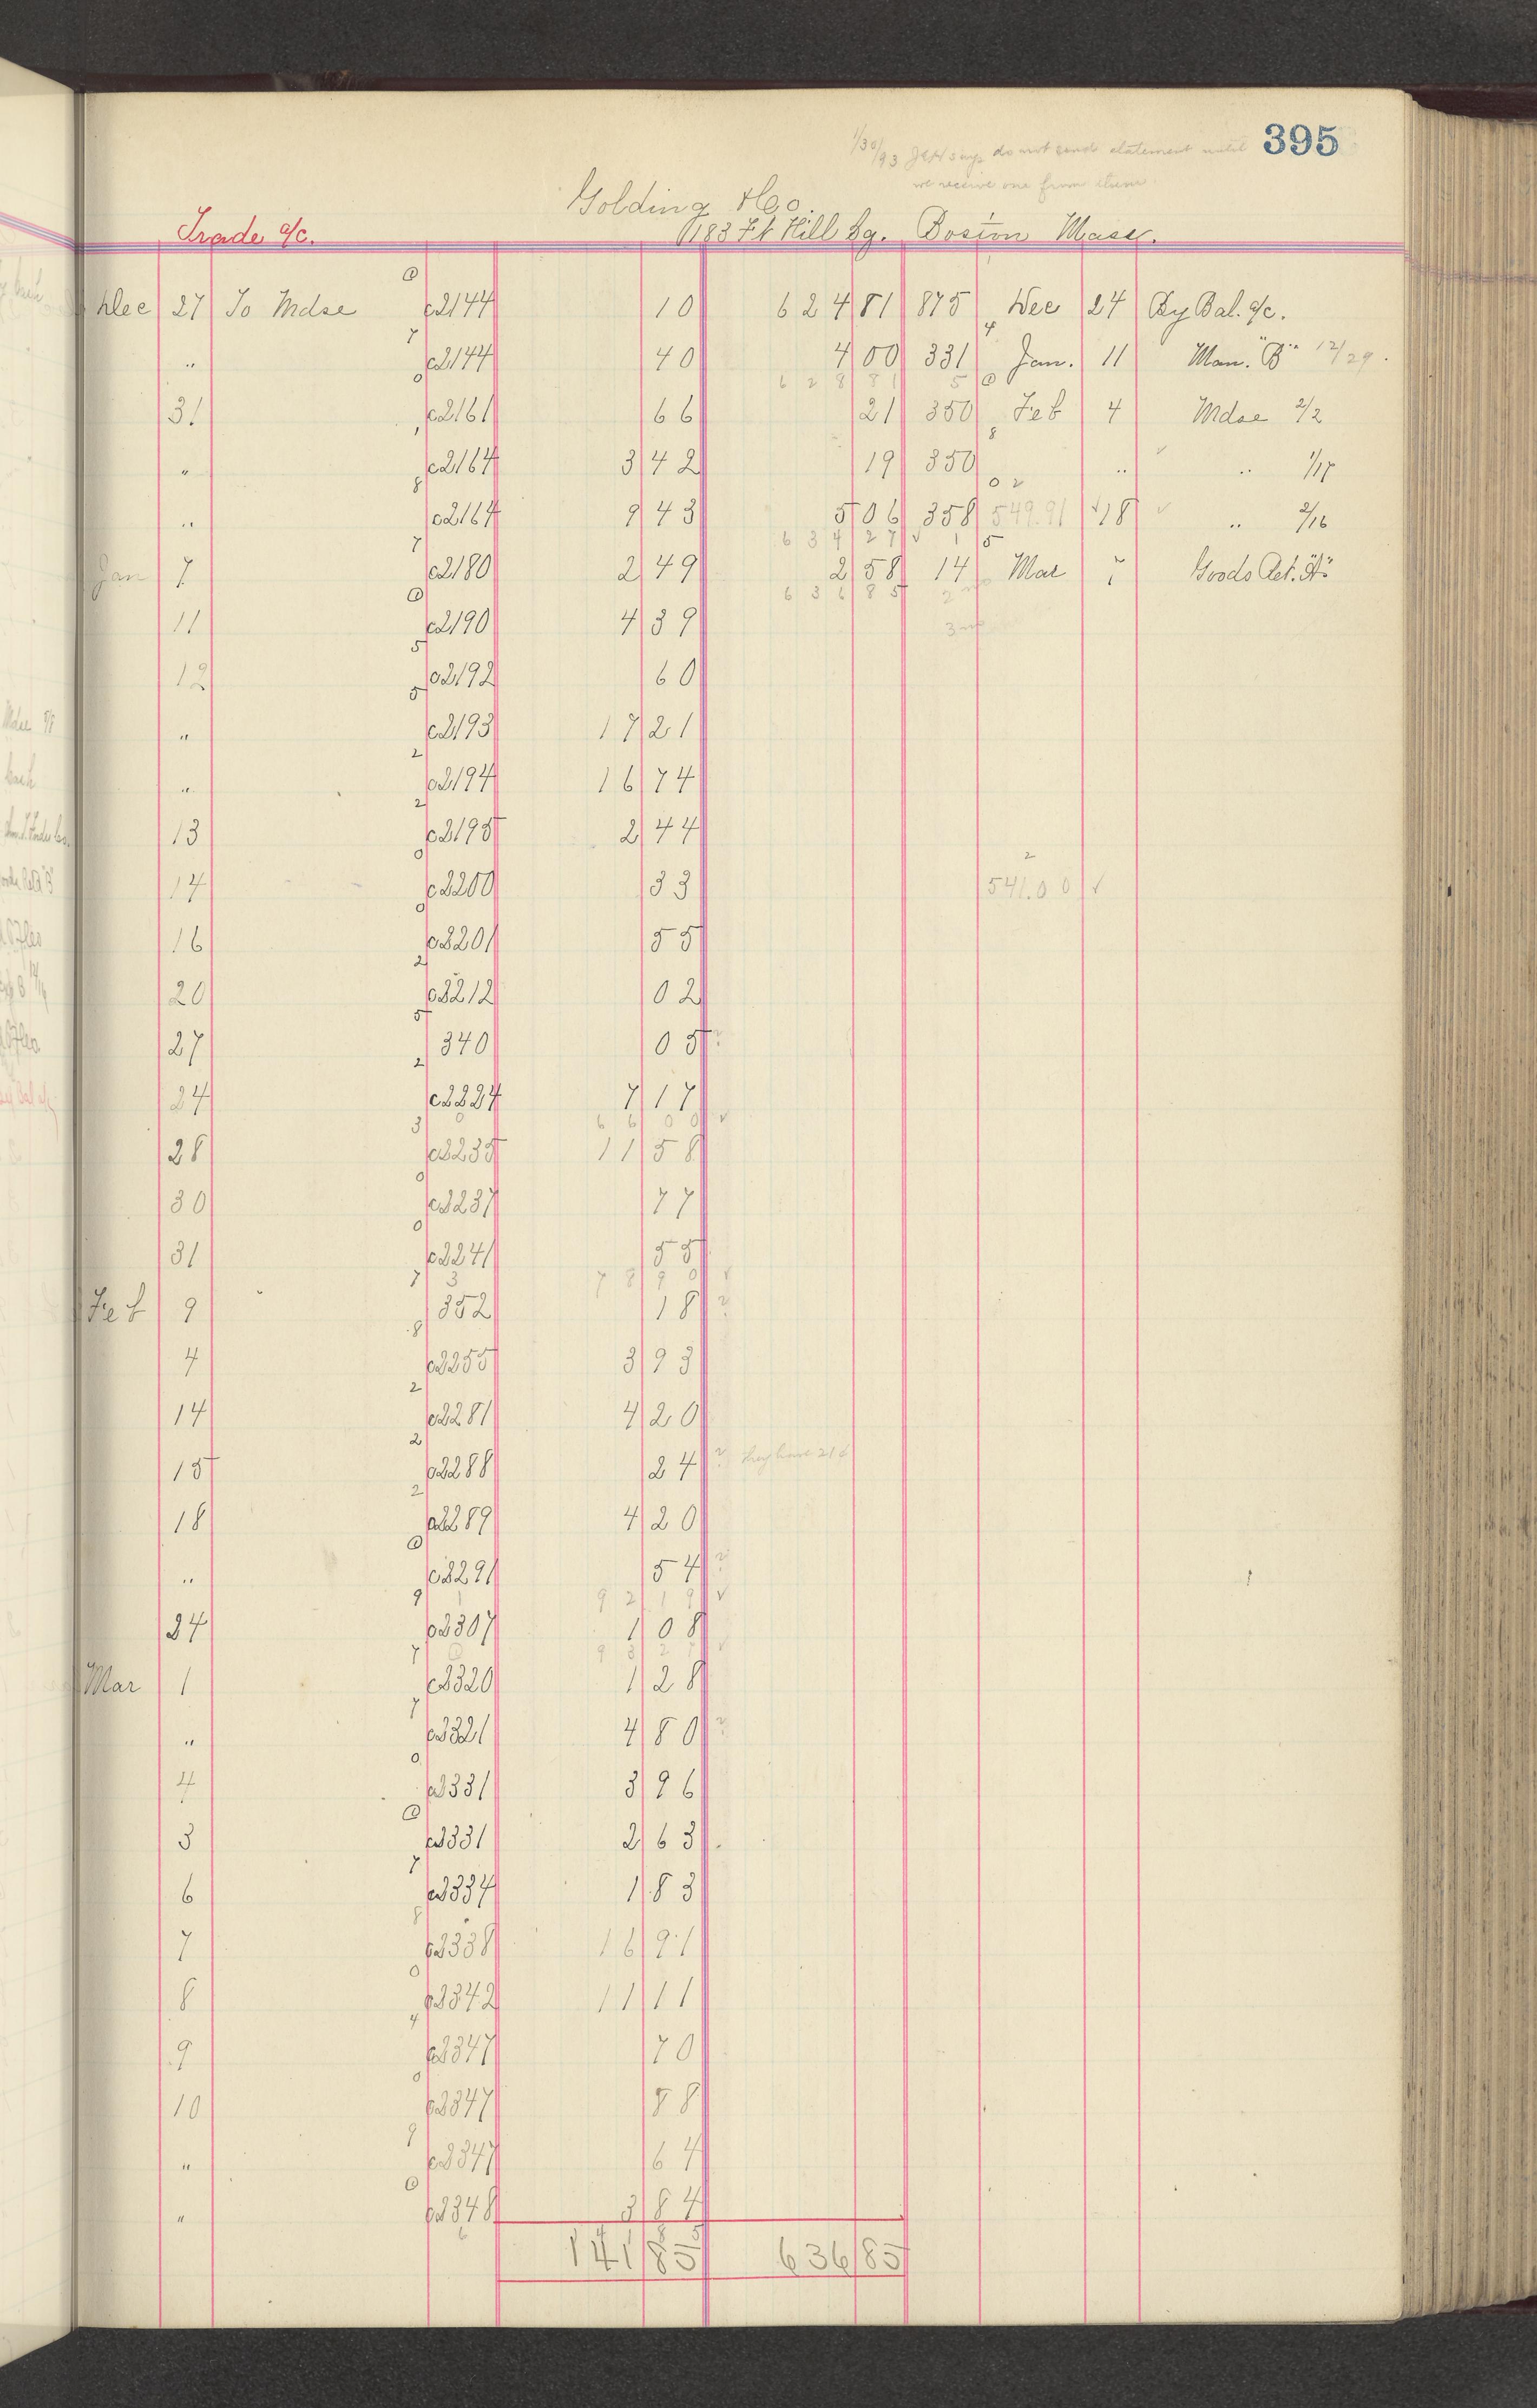 395
1/30/93 do not send statement until
we receive one from them
Golding & Co.
Trade a/c. 183 Ft Hill Sq. Boston Mass.
Dec 27 To Mdse c2144 10 624 81 875 Dec 24 By Bal. a/c.
" c2144 40 4 00 331 Jan. 11 Man. "B" 12/29
628 81
31 c2161 66 21 350 Feb 4 Mdse 2/2
" c2164 3 42 19 350 " " 1/17
" c2164 9 43 5 06 358 549.91 18 " 2/16
634 27
Jan 7 c2180 2 49 2 58 14 Mar 7 Goods Ret. "A"
636 85
11 c2190 4 39
12 c2192 60
" c2193 17 21
" c2194 16 74
13 c2195 2 44
14 c2200 33 541.00 ✓
16 c2201 55
20 c2212 02
27 340 05 ?
24 c2224 7 17
66 00 ✓
28 c2235 11 58
30 c2237 77
31 c2241 55
78 90 ✓
Feb 9 352 18 ?
4 c2255 3 93
14 c2281 4 20
15 c2288 24 ? they have 21¢
18 c2289 4 20
" c2291 54 ?
92 19 ✓
24 c2307 1 08
93 27 ✓
Mar 1 c2320 1 28
" c2321 4 80 ?
4 c2331 3 96
3 c2331 2 63
6 c2334 1 83
7 c2338 16 91
8 c2342 11 11
9 c2347 70
10 c2347 88
" c2347 64
" c2348 3 84
141 85 636 85